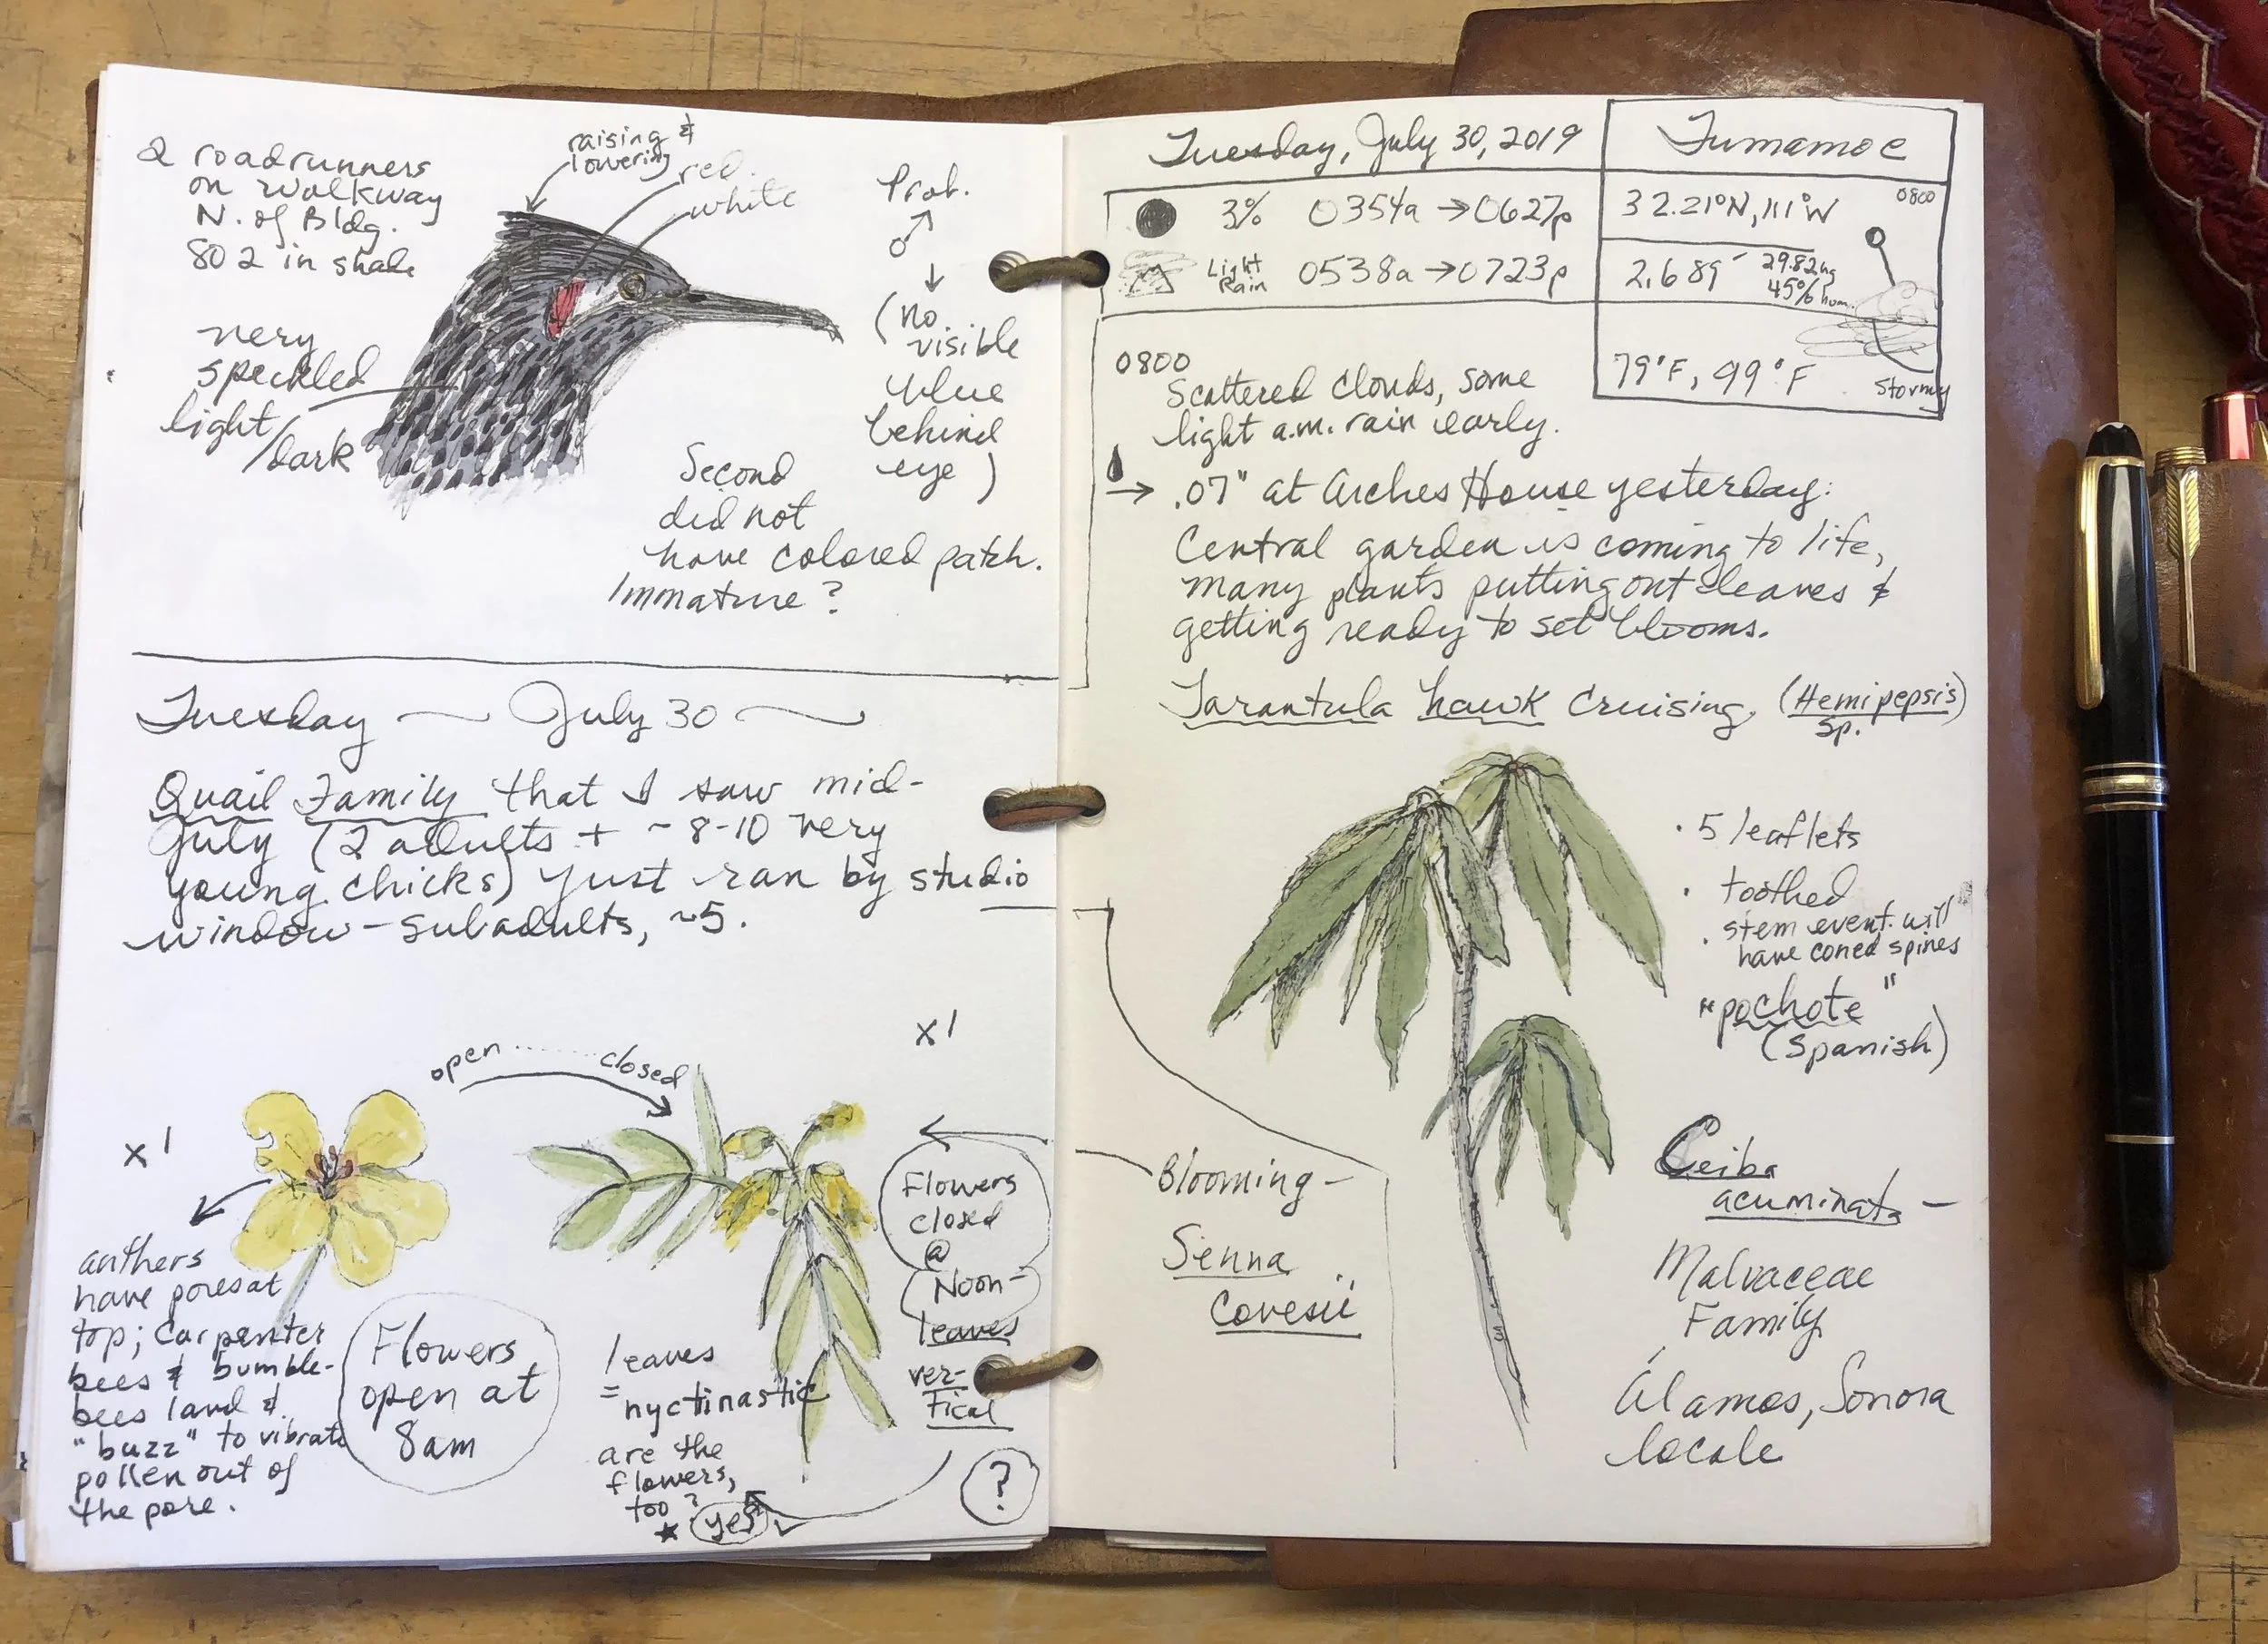 2 roadrunners
on walkway
N. of Bldg.
802 in shade
raising &
lowering
red
white
Prob.
♂
(no
visible
blue
behind
eye)
very
speckled
light/
dark
Second
did not
have colored patch.
Immature?
Tuesday ~ July 30 ~
Quail Family that I saw mid-
July (2 adults + ~8-10 very
young chicks) just ran by studio
window - subadults, ~5.
x1
open......closed
x1
anthers
have pores at
top; carpenter
bees & bumble-
bees land &
"buzz" to vibrate
pollen out of
the pore.
Flowers
open at
8am
leaves
= nyctinastic
are the
flowers,
too?
★ yes
Flowers
closed
@
Noon-
leaves
ver-
tical
?
Tuesday, July 30, 2019
Tumamoc
3% 0354a → 0627p
Light
Rain 0538a → 0723p
32.21°N, 111°W
0800
2,689' 29.82hg
45% hum.
79°F, 99°F
Stormy
0800
Scattered clouds, some
light a.m. rain early.
→ .07" at Arches House yesterday:
Central garden is coming to life,
many plants putting out leaves &
getting ready to set blooms.
Tarantula hawk cruising, (Hemipepsis)
sp.
· 5 leaflets
· toothed
· stem event. will
have coned spines
"pochote"
(Spanish)
Ceiba
acuminata -
Malvaceae
Family
Álamos, Sonora
locale
Blooming -
Senna
covesii